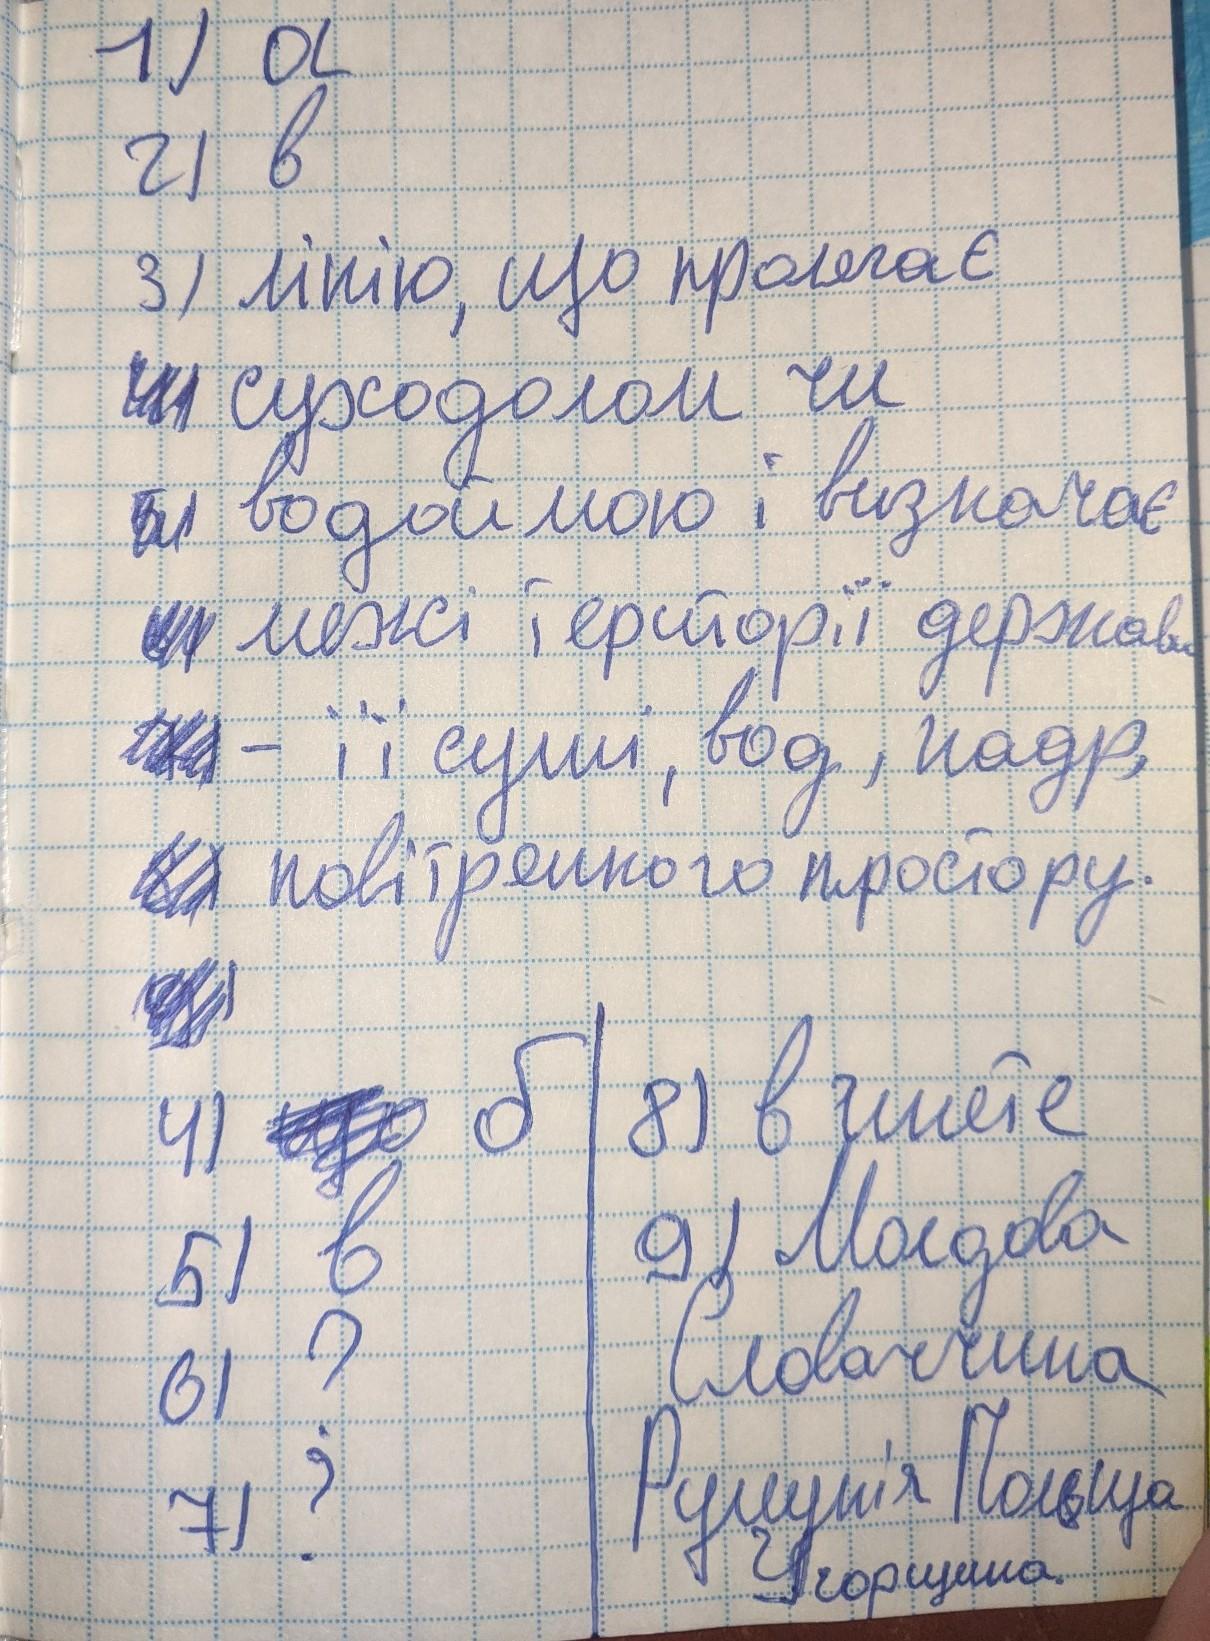 1) а
2) в
3) лінію, що пролягає
суходолом чи
5) водоймою і визначає
межі території держави
- її суші, вод, надр,
повітряного простору.
4) б
5) в
6) ?
7) ?
8) в
9) Молдова
Словаччина
Румунія Польща
Угорщина.